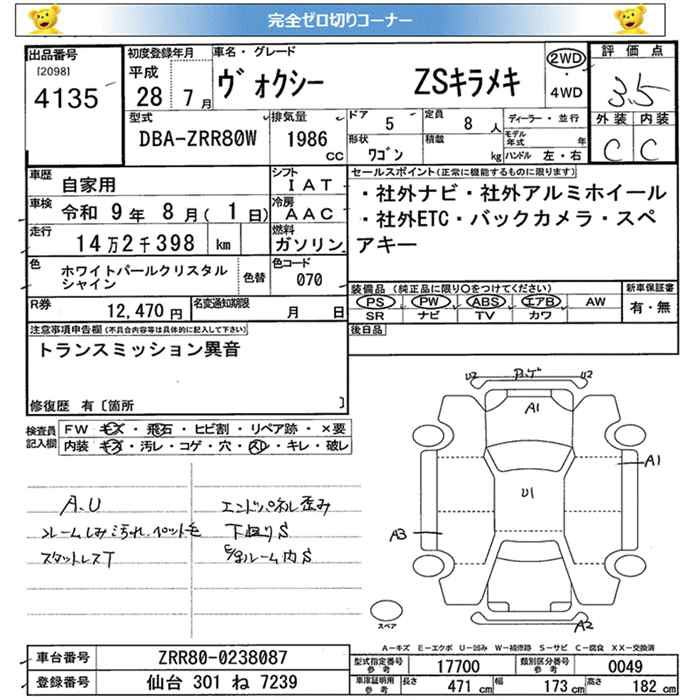 完全ゼロ切りコーナー
出品番号
[2098]
4135
初度登録年月
平成
28年7月
車名・グレード
ヴォクシー ZSキラメキ
2WD
・
4WD
評価点
3.5
外装 内装
C C
型式
DBA-ZRR80W
排気量
1986
cc
ドア
5
定員
8人
形状
ワゴン
積載
kg
ディーラー・並行
モデル年式 年
ハンドル 左・右
車歴
自家用
シフト
IAT
車検
令和 9年 8月( 1日)
冷房
AAC
走行
14万2千398 km
燃料
ガソリン
色
ホワイトパールクリスタル
シャイン
色替
色コード
070
R券
12,470円
名変通知期限
月 日
セールスポイント(正常に機能するものに限ります)
・社外ナビ・社外アルミホイール
・社外ETC・バックカメラ・スペ
アキー
装備品 (純正品に限り○をつけてください)
PS PW ABS エアB AW
SR ナビ TV カワ
新車保証書
有・無
後日品
注意事項申告欄(不具合内容等は具体的に記入して下さい)
トランスミッション異音
修復歴 有〔箇所 〕
検査員
記入欄
FW キズ・飛石・ヒビ割・リペア跡・×要
内装 キズ・汚レ・コゲ・穴・スレ・キレ・破レ
A.U
エンドパネル歪み
ルームしみ汚れ.ペット毛
下廻りS
スタットレスT
E/gルーム内S
U2
U2
A1
A1
U1
A3
A2
スペア
A-キズ E-エクボ U-凹み W-補修跡 S-サビ C-腐食 XX-交換済
車台番号
ZRR80-0238087
登録番号
仙台 301 ね 7239
型式指定番号
参考
17700
類別区分番号
参考
0049
車庫証明用
参考
長さ 471 cm 幅 173 cm 高さ 182 cm